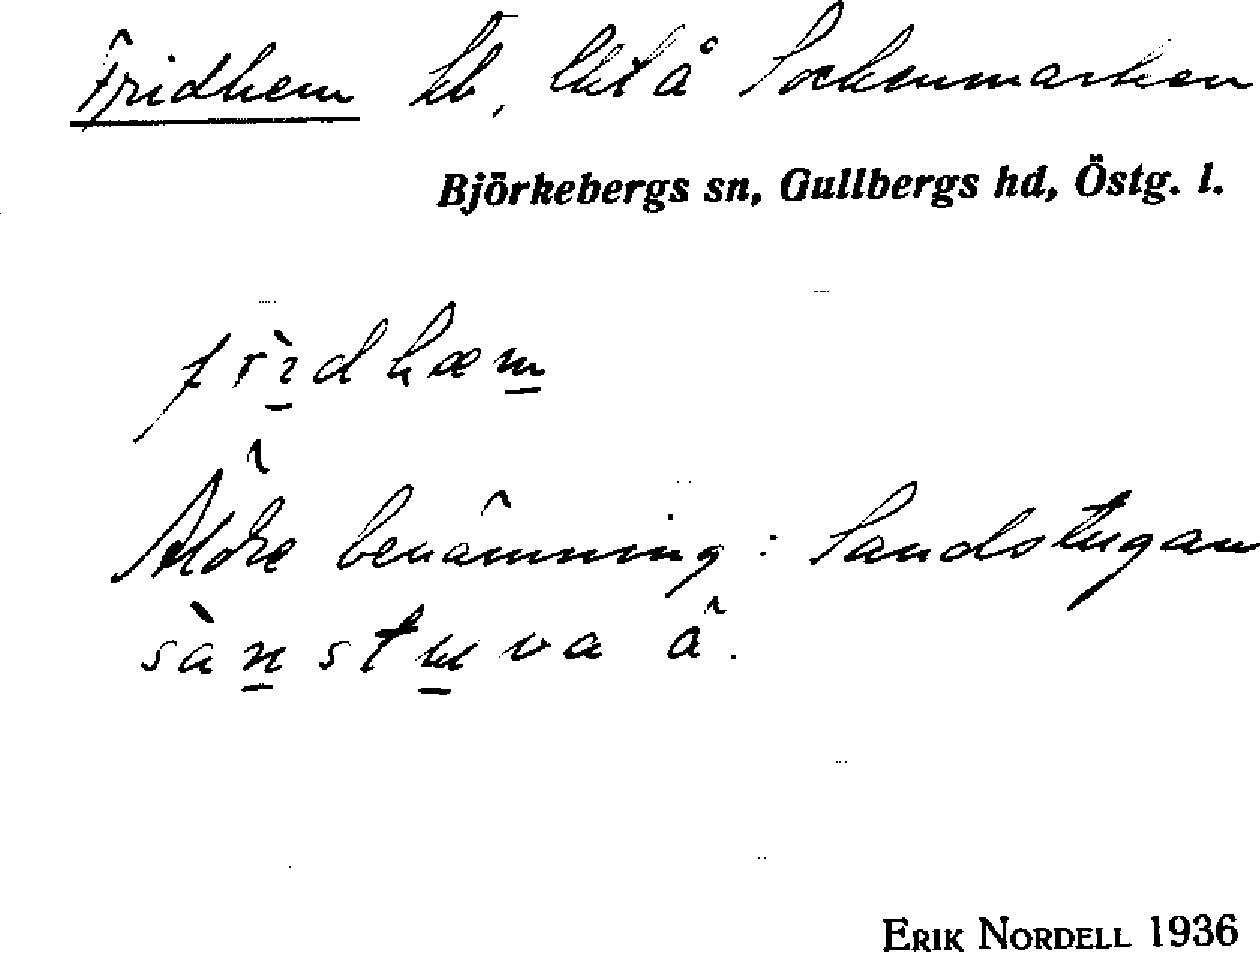 Fridhem hb, lht å Sockenmarken
Björkebergs sn, Gullbergs hd, Östg. l.
frìdhæm
Äldre benämning: Sandstugan
sànstuva
ERIK NORDELL 1936